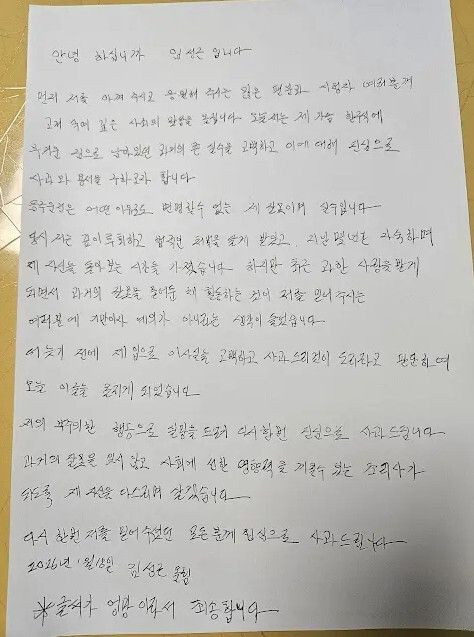 안녕 하십니까 임성근 입니다
먼저 저를 아껴 주시고 응원해 주시는 많은 팬분과 시청자 여러분께
고개 숙여 깊은 사죄의 말씀을 올립니다 오늘 저는 제 가슴 한구석에
무거운 짐으로 남아있던 과거의 큰 실수를 고백하고 이에 대해 진심으로
사과와 용서를 구하고자 합니다
음주운전은 어떤 이유로도 변명할수 없는 제 잘못이며 실수입니다
당시 저는 깊이 후회하고 법적인 처벌을 달게 받았고, 지난 몇년간 자숙하며
제 자신을 돌아 보는 시간을 가졌습니다 하지만 최근 과한 사랑을 받게
되면서 과거의 잘못을 묻어둔 채 활동하는 것이 저를 믿어주시는
여러분께 기만이자 예의가 아니라는 생각이 들었습니다
더 늦기 전에 제 입으로 이사실을 고백하고 사과드리것이 도리라고 판단하여
오늘 이글을 올리게 되었습니다
저의 부주의한 행동으로 실망을 드려 다시한번 진심으로 사과드립니다
과거의 잘못을 잊지 않고 사회에 선한 영향력을 끼칠수 있는 조리사가
되도록 제 자신을 다스리며 살겠습니다
다시 한번 저를 믿어주셨던 모든분께 진심으로 사과드립니다
2026년 1월18일 임성근 올림
※글씨가 엉망이라서 죄송합니다